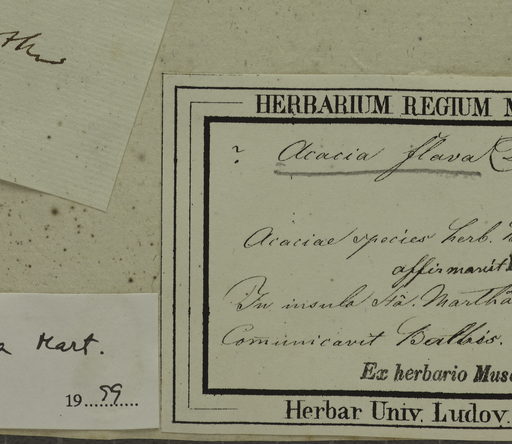 HERBARIUM REGIUM M
? Acacia flava (D
Acaciae species herb.
affirmavit
In insula Stâ. Martha
Comunicavit Balbis.
Ex herbario Muse
Herbar Univ. Ludov.
a Mart.
19 99